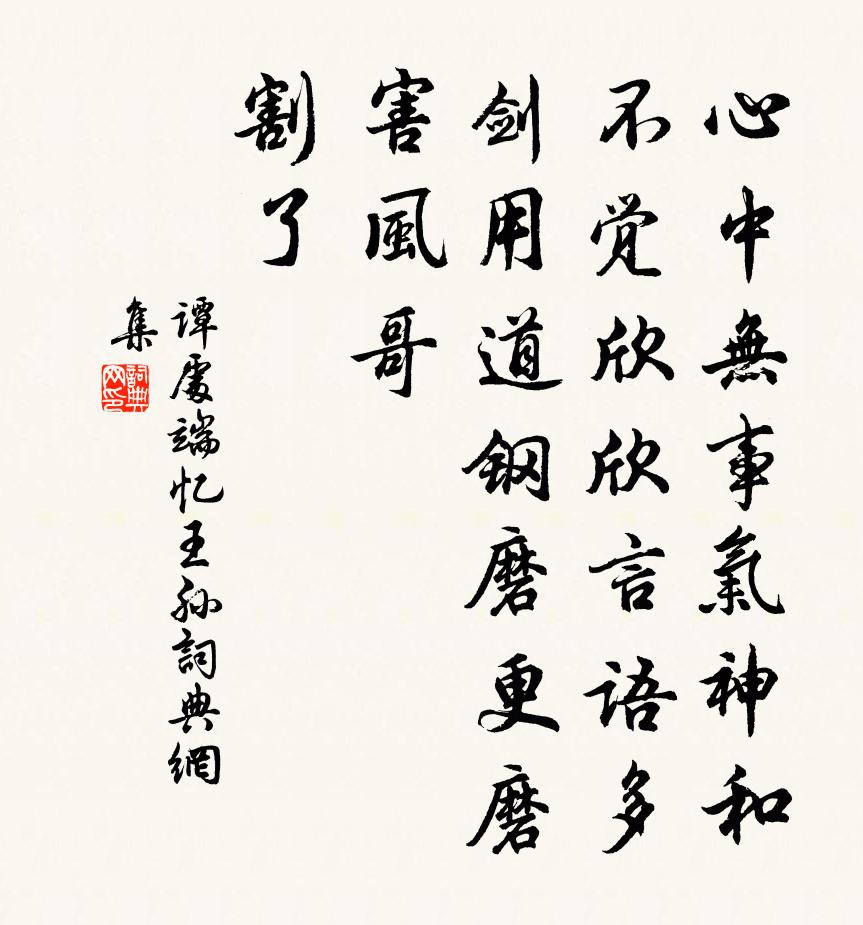 心中無事氣神和
不觉欣欣言语多
剑用道钢磨更磨
害風哥
割了
谭處端忆王孙詞典網
集
詞典
网印